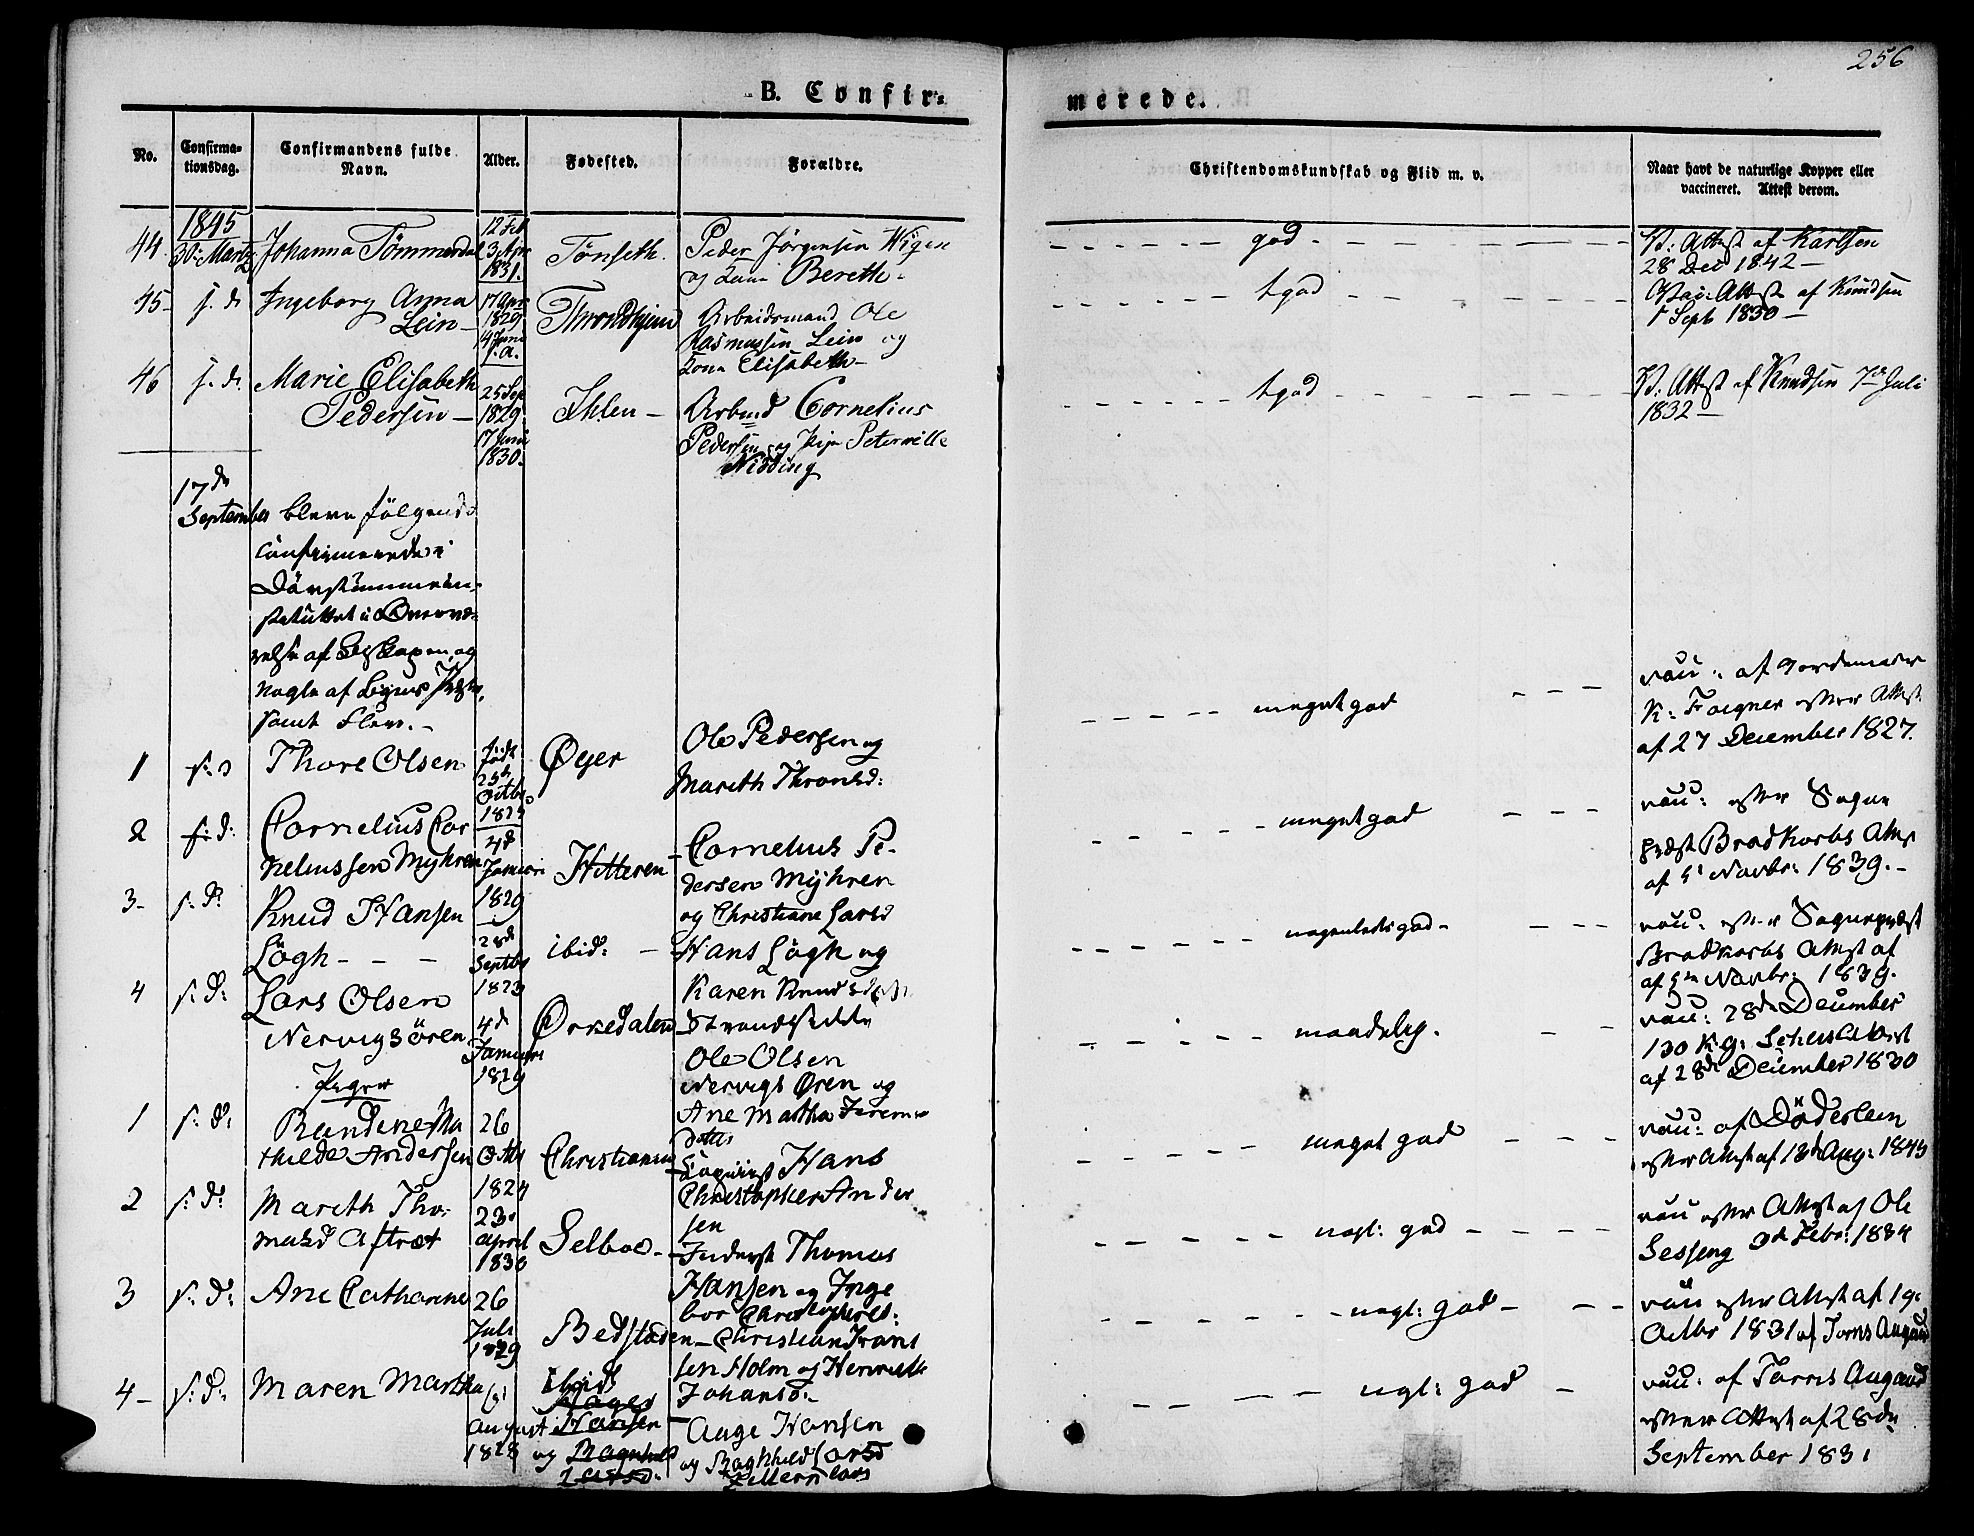 256
B. Confir=
merede.
No.
Confirma=
tionsdag.
Confirmandens fulde
Navn.
Alder.
Fødested.
Forældre.
Christendomskundskab og Flid m. v.
Naar havt de naturlige Kopper eller
vaccineret. Attest derom.
1845
44. 30. Martz Johanna Tömmerdal
12 Feb
3 Apr
1831.
Tönseth.
Peder Jörgensen Wigen
og Kone Bereth -
god
V: Attest af Karlsen
28 Dec 1842 -
45 - s. d. Ingeborg Anna
Lein -
17 Apr
1829
14 Juni
s. a.
Throndhjem
Arbeidsmand Ole
Rasmussen Lein og
Kone Elisabeth -
tgod
Vac: Attest af Knudsen
1 Sept 1830 -
46 s. d. Marie Elisabeth
Pedersen -
25 Sep
1829.
17 Juni
1830.
Ihlen -
Arbmd Cornelius
Pedersen og Pige Peternille
Nidding
tgod
V. Attest af Knudsen 7de Juli
1832 -
17de
September bleve fölgende
confirmerede i
Dövstummein-
stetuttet i Overvæ-
relse af Biskopen og
nogle af Byens Præster,
samt Flere. -
1 s: d Thore Olsen
födt
25de
Octbr
1825
Öyer
Ole Pedersen og
Mareth Thronsd:
meget god
vac: af Gordemoer
K: Fougner efter Attest
af 27 December 1827.
2 s: d: Cornelius Cor
neliussen Myhren
4d
Januari
1829
Hitteren -
Cornelius Pe-
dersen Myhren
og Christiane Larsd
meget god
vac: efter Sogne
præst Brodkorbs Attest
af 5t Novbr: 1839. -
3 - s: d: Knud Hansen
Lögh - - -
28d
Septbr
1823
ibid: -
Hans Lögh og
Karen Knudsd
Strandsidde
nogenledes god -
vac: efter Sognepræst
Brodkorbs Attest af
af 5te Novbr: 1839.
4 s: d: Lars Olsen
Nervigsören
4d
Januari
1829
Orkedalen
Ole Olsen
Nervigs Øren og
Ane Martha Jerem
dater
maadelig.
vac: 28de December
130 K.g: Schus Attest
af 28de December 1830
Piger
1 s: d: Randine Ma
thilde Andersen
26
Octbr
1824
Christiansund
Hans
Christopher Ander
sen
meget god
vac: af Döderlein
efter Attest af 13de Aug: 1843
2 s: d: Mareth Tho-
masd Aftret
23d
April
1830
Selboe -
Inderst Thomas
Hansen og Inge
bor Christophersd:
nogl: god
vac efter Attest af Ole
Sesseng 3d Febr: 1834
3 s: d: Ane Catharine
26
Juli
1829
Bedstaden -
Christian Frans
sen Holm og Henriette
Johansd -
nogl: god -
vac efter Attest af 19.
Octbr 1831 af Torris Augaud
4 - s: d: Maren Martha
August
1828
Ibid:
Aage
Hansen
og Magnhild
Larsd.
Auge Hansen
og Raghhild Larsd
ngl: god
vac: af Torris Augaud
efter Attest af 28de
September 1831